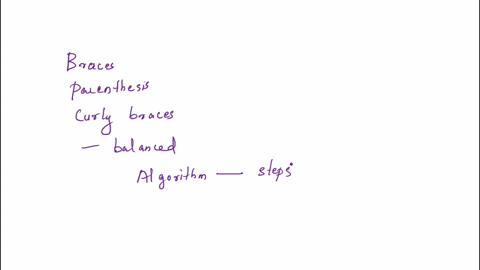 Braces
Parenthesis
Curly braces
— balanced
Algorithm — steps